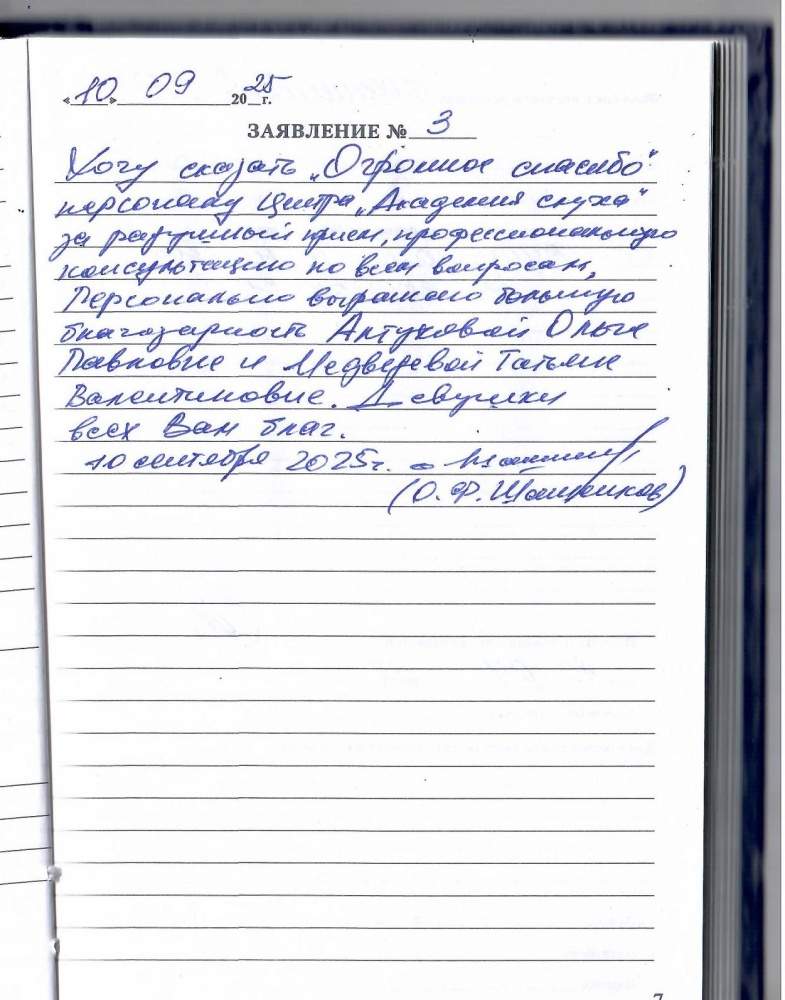 «10» 09 2025г.
ЗАЯВЛЕНИЕ № 3
Хочу сказать „Огромное спасибо"
персоналу Центра „Академия слуха"
за радушный прием, профессиональную
консультацию по всем вопросам,
Персонально выражаю большую
благодарность Алтуховой Ольге
Павловне и Медведевой Татьяне
Валентиновне. Девушки
всех Вам благ.
10 сентября 2025г.
(О.Ф.
7